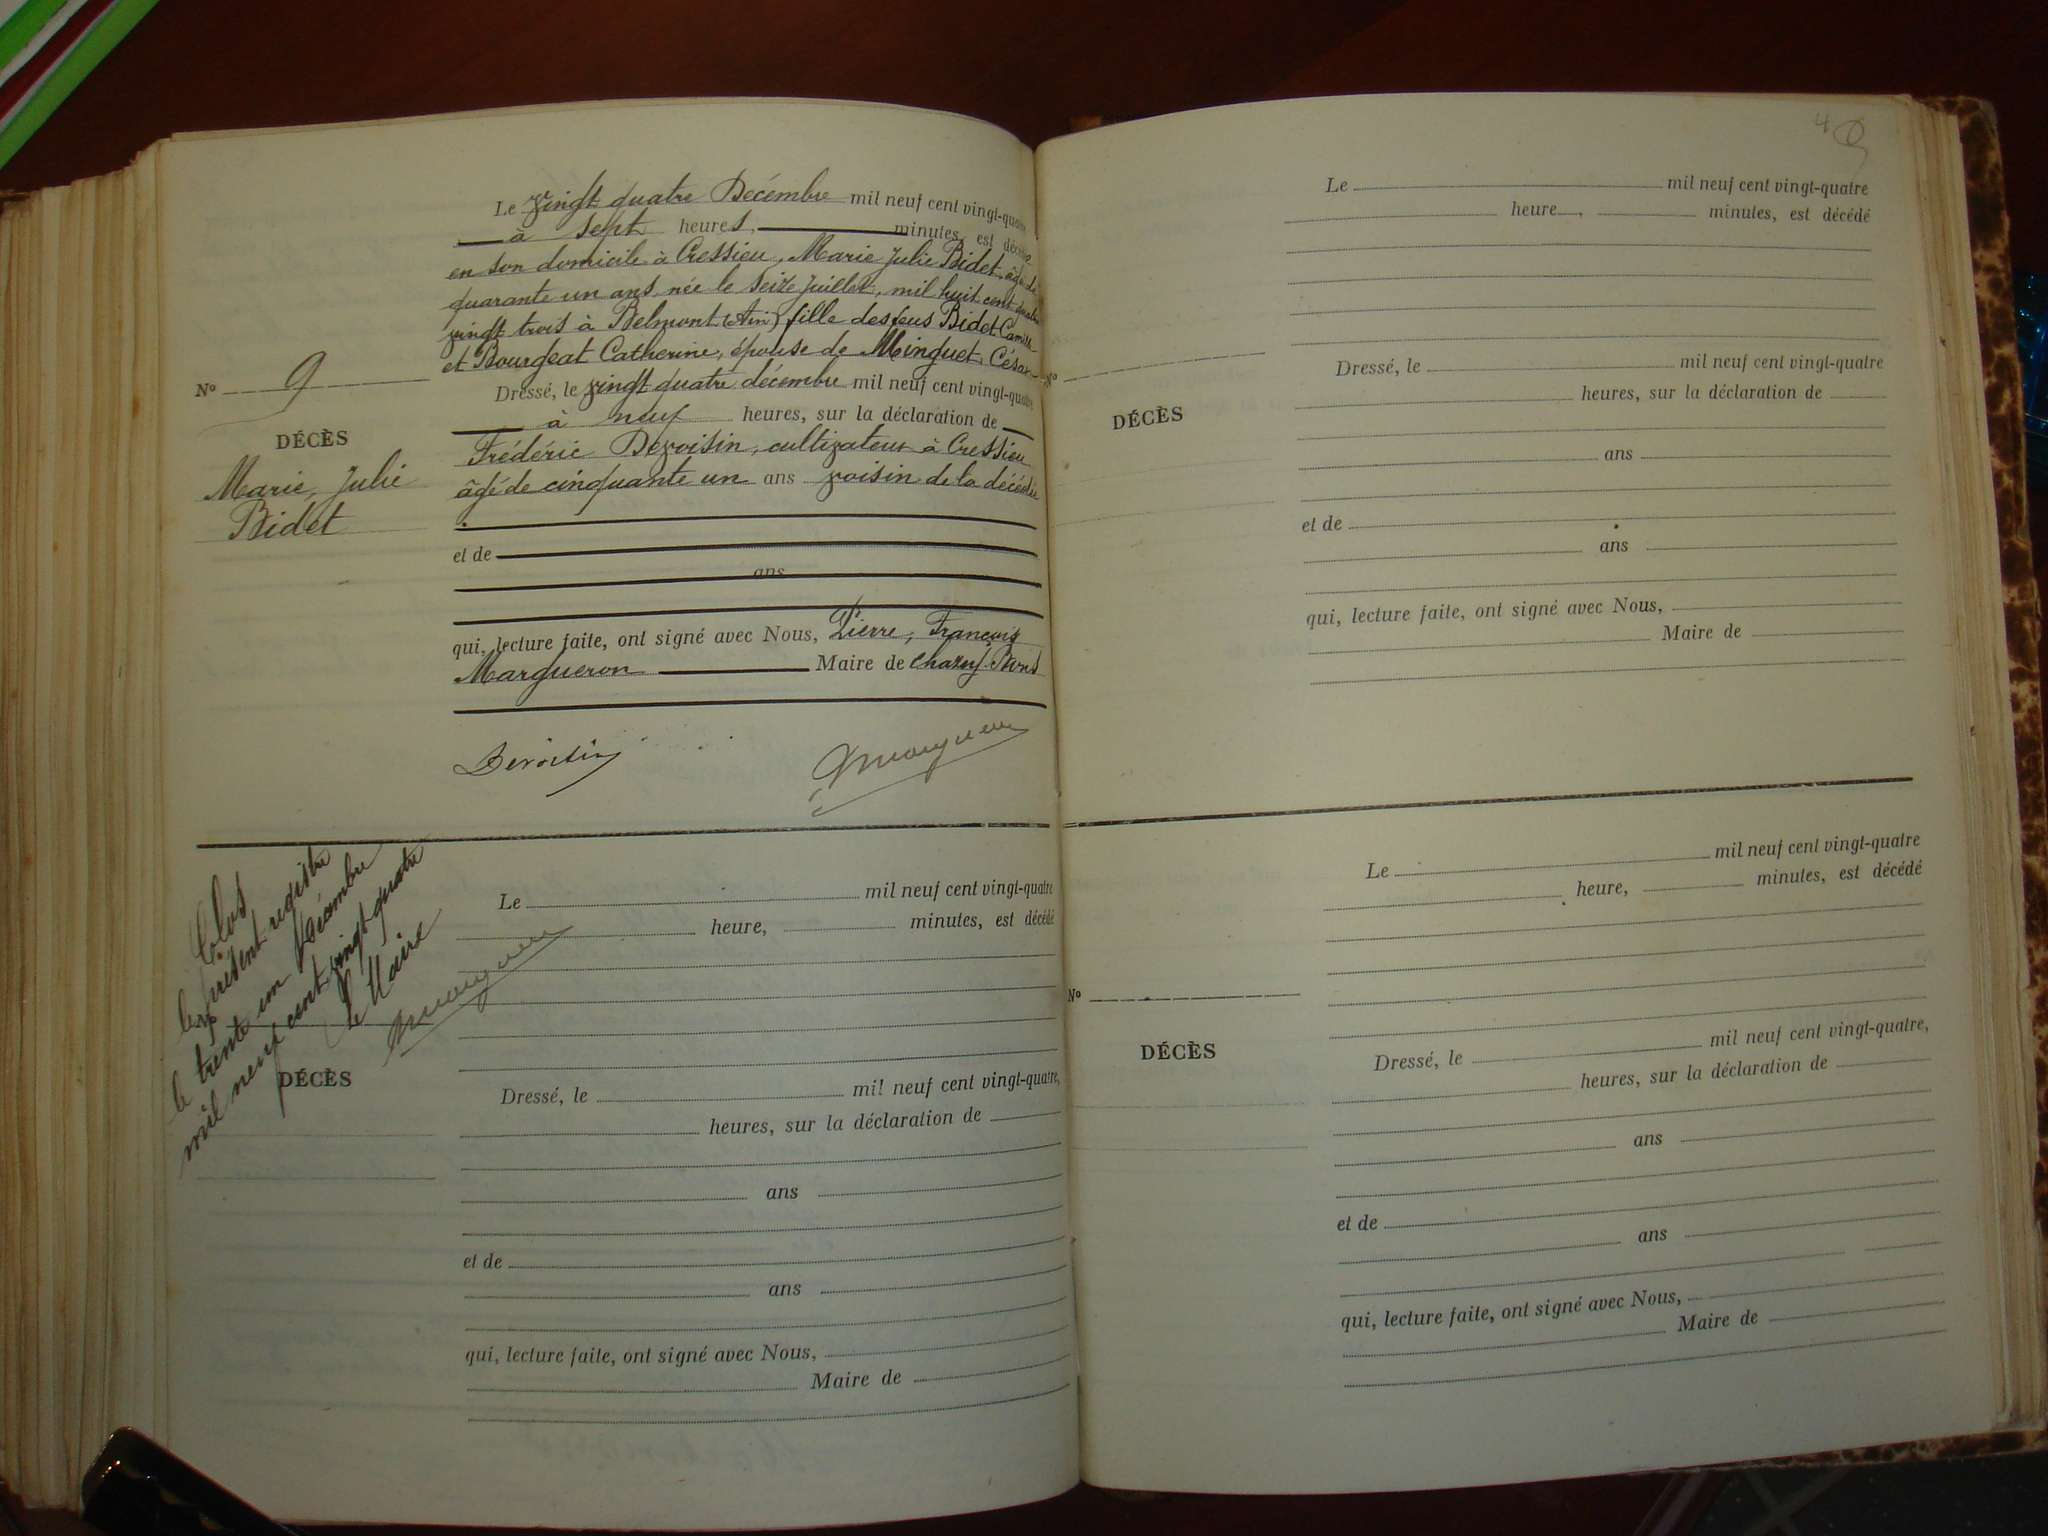 Le vingt quatre Décembre mil neuf cent vingt-quatre
à sept heures, minutes, est décédée
en son domicile à Cressieu, Marie Julie Bidet, âgée de
quarante un ans, née le seize juillet, mil huit cent quatre
vingt trois à Belmont (Ain) fille des feus Bidet Camille
et Bourgeat Catherine, épouse de Minguet, César
Dressé, le vingt quatre décembre mil neuf cent vingt-quatre
à neuf heures, sur la déclaration de
Frédéric Devoisin, cultivateur à Cressieu
âgé de cinquante un ans voisin de la décédée
et de
ans
qui, lecture faite, ont signé avec Nous, Pierre, François
Margueron Maire de Chazey-Bons
Devoisin
No 9
DÉCÈS
Marie, Julie
Bidet
Clos
le présent registre
le trente un Décembre
mil neuf cent vingt-quatre
Le Maire
DÉCÈS
Le mil neuf cent vingt-quatre
heure, minutes, est décédé
Dressé, le mil neuf cent vingt-quatre,
heures, sur la déclaration de
ans
et de
ans
qui, lecture faite, ont signé avec Nous,
Maire de
4
Le mil neuf cent vingt-quatre
heure, minutes, est décédé
No
DÉCÈS
Dressé, le mil neuf cent vingt-quatre
heures, sur la déclaration de
ans
et de
ans
qui, lecture faite, ont signé avec Nous,
Maire de
Le mil neuf cent vingt-quatre
heure, minutes, est décédé
No
DÉCÈS
Dressé, le mil neuf cent vingt-quatre,
heures, sur la déclaration de
ans
et de
ans
qui, lecture faite, ont signé avec Nous,
Maire de